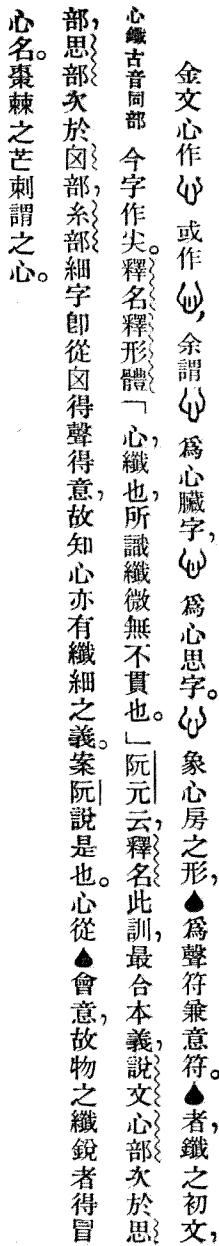 金文心作或作,余謂爲心臟字,爲心思字。象心房之形,爲聲符兼意符。者,鑯之初文,
心鑯古音同部 今字作尖。釋名釋形體「心,纖也,所識纖微無不貫也。」阮元云,釋名此訓,最合本義,說文心部次於思
部,思部次於囟部,糸部細字卽從囟得聲得意,故知心亦有纖細之義。案阮說是也。心從會意,故物之纖銳者得冒
心名。棗棘之芒刺謂之心。